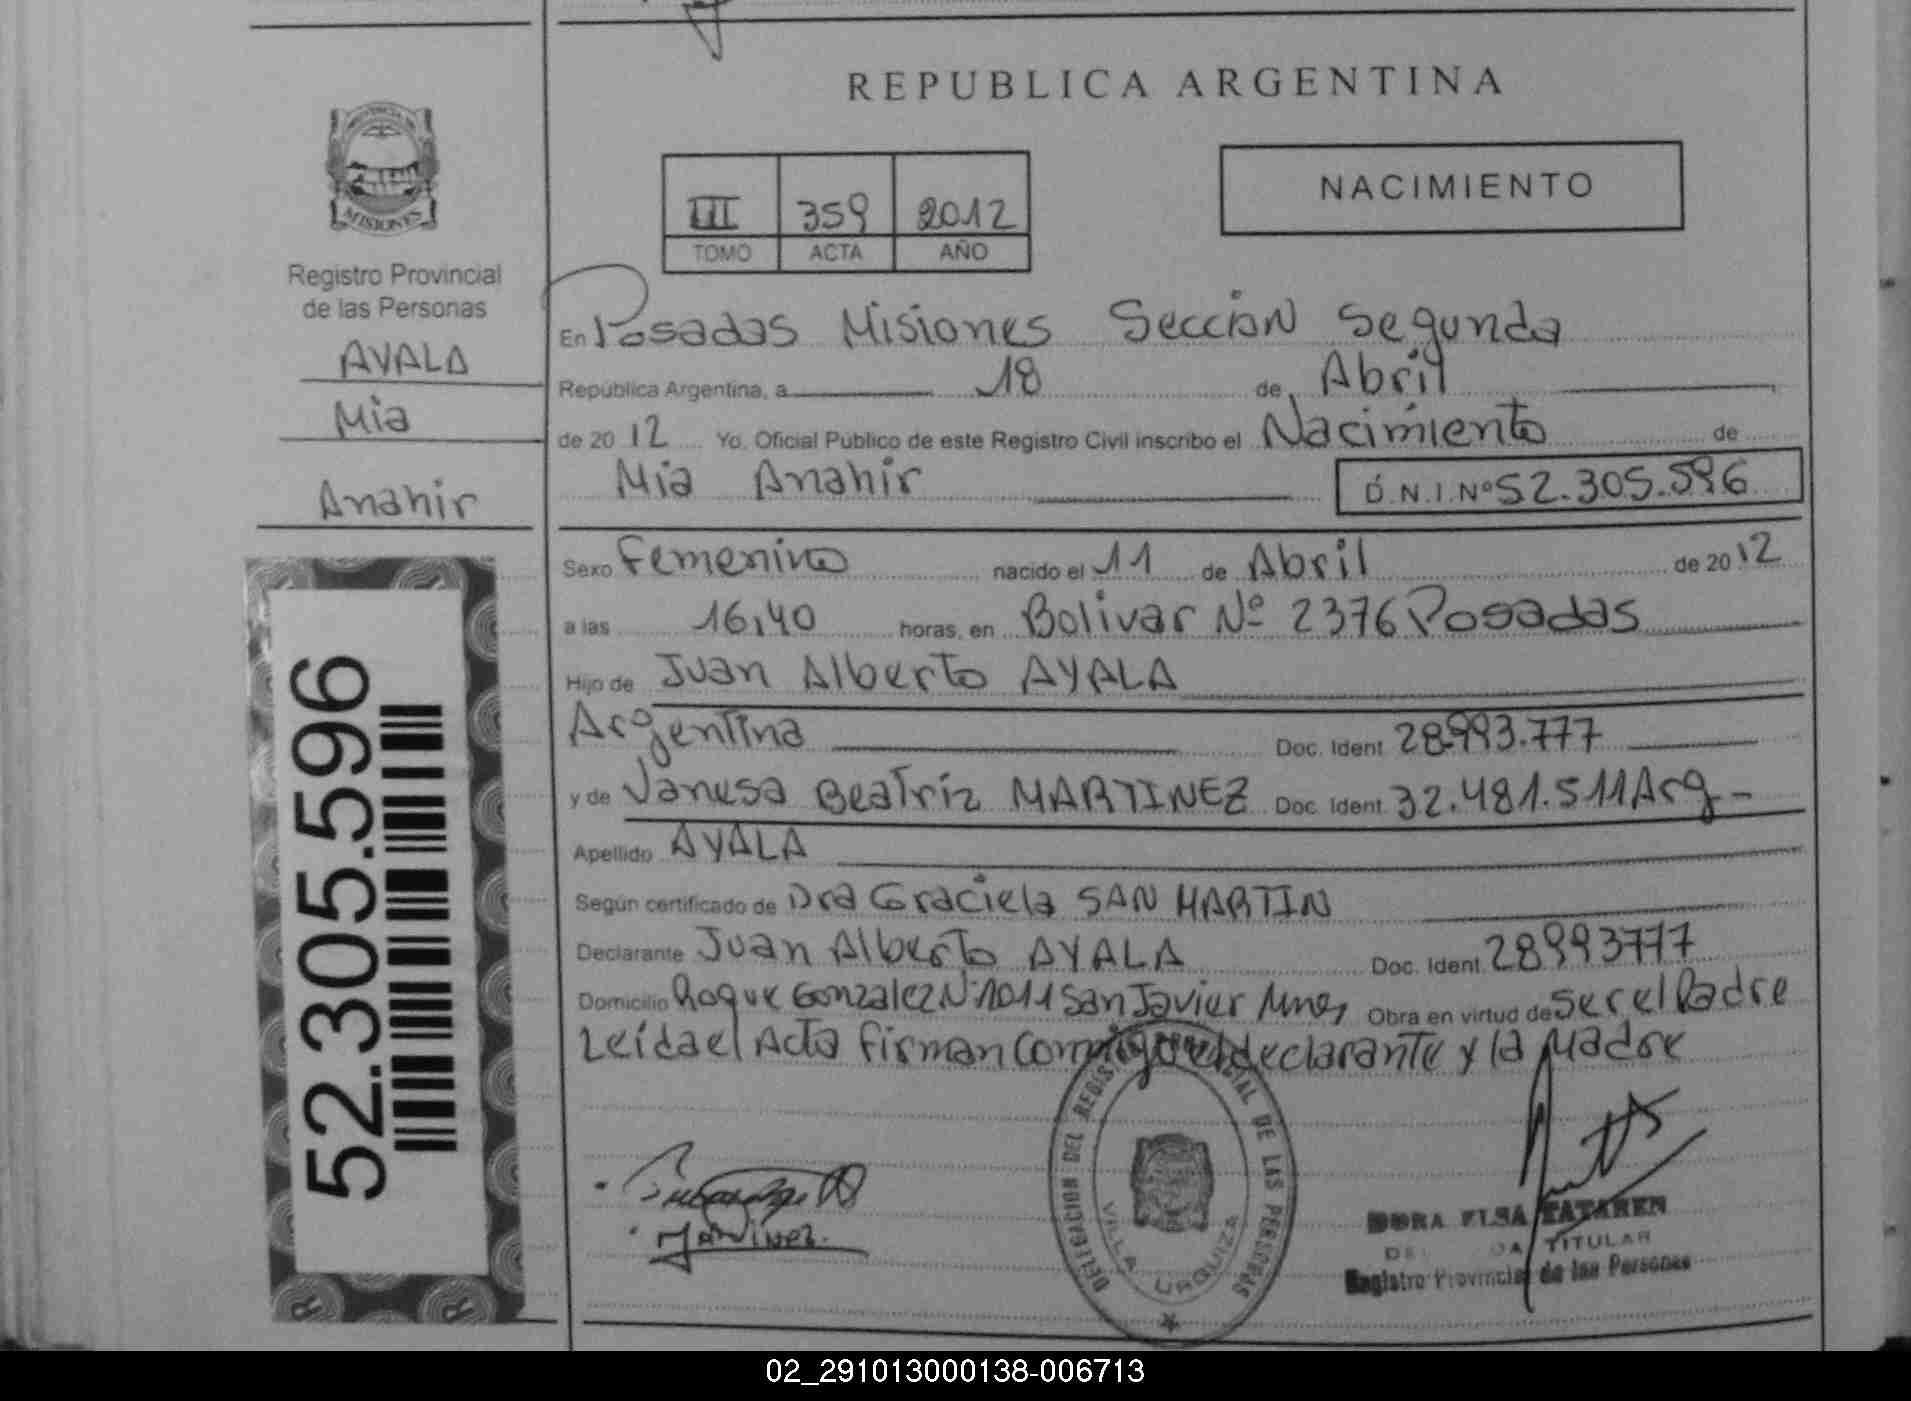 REPUBLICA ARGENTINA
PROVINCIA DE
MISIONES
Registro Provincial
de las Personas
AYALA
Mia
Anahir
52.305.596
III 359 2012
TOMO ACTA AÑO
NACIMIENTO
En Posadas Misiones Sección Segunda
República Argentina, a 18 de Abril
de 2012 Yo, Oficial Público de este Registro Civil inscribo el Nacimiento de
Mia Anahir D.N.I.Nº 52.305.596
Sexo Femenino nacido el 11 de Abril de 2012
a las 16,40 horas, en Bolivar Nº 2376 Posadas
Hijo de Juan Alberto AYALA
Argentina Doc. Ident. 28.993.777
y de Vanesa Beatríz MARTINEZ Doc. Ident. 32.481.511 Arg-
Apellido AYALA
Según certificado de Dra Graciela SAN MARTIN
Declarante Juan Alberto AYALA Doc. Ident. 28993777
Domicilio Roque Gonzalez Nº 1011 San Javier Mnes Obra en virtud de ser el Padre
Leída el Acta firman conmigo el declarante y la Madre
DELEGACION DEL REGISTRO PROVINCIAL DE LAS PERSONAS
VILLA URQUIZA
MARTINEZ.
DORA ELSA TATAREN
TITULAR
Registro Provincial de las Personas
R R
02_291013000138-006713